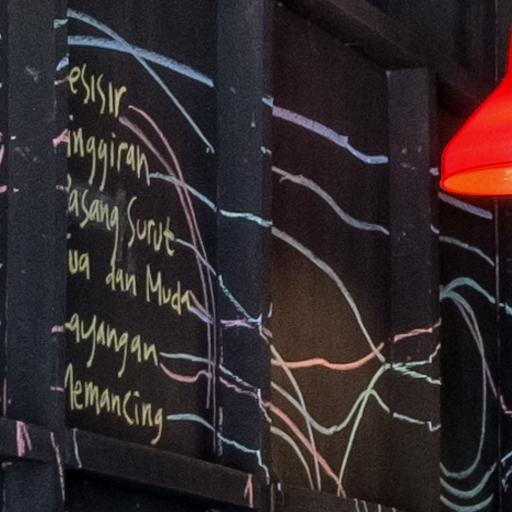 esisir
inggiran
asang Surut
ua dan Muda
ayangan
Memancing